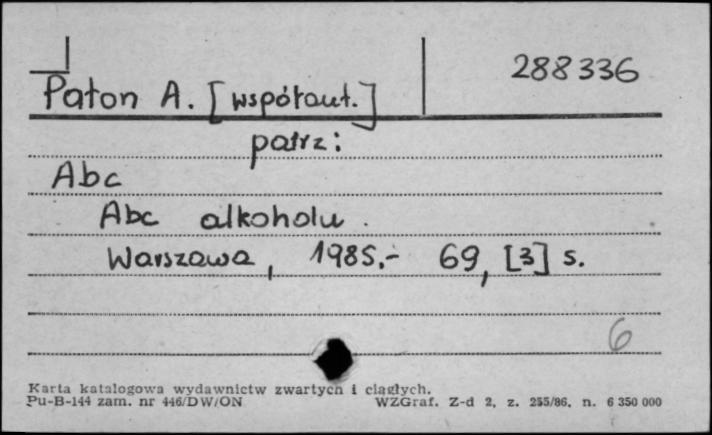 288336
Paton A. [współaut.]
patrz:
Abc
Abc alkoholu.
Warszawa, 1985.- 69, [3] s.
6
Karta katalogowa wydawnictw zwartych i ciągłych.
Pu-B-144 zam. nr 446/DW/ON WZGraf. Z-d 2, z. 255/86, n. 6 350 000